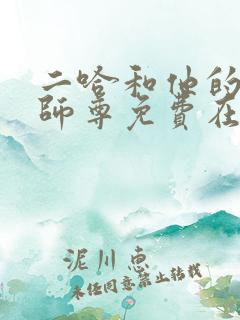 二哈和他的
師尊免費在
泥川恵
未任同意禁止转载